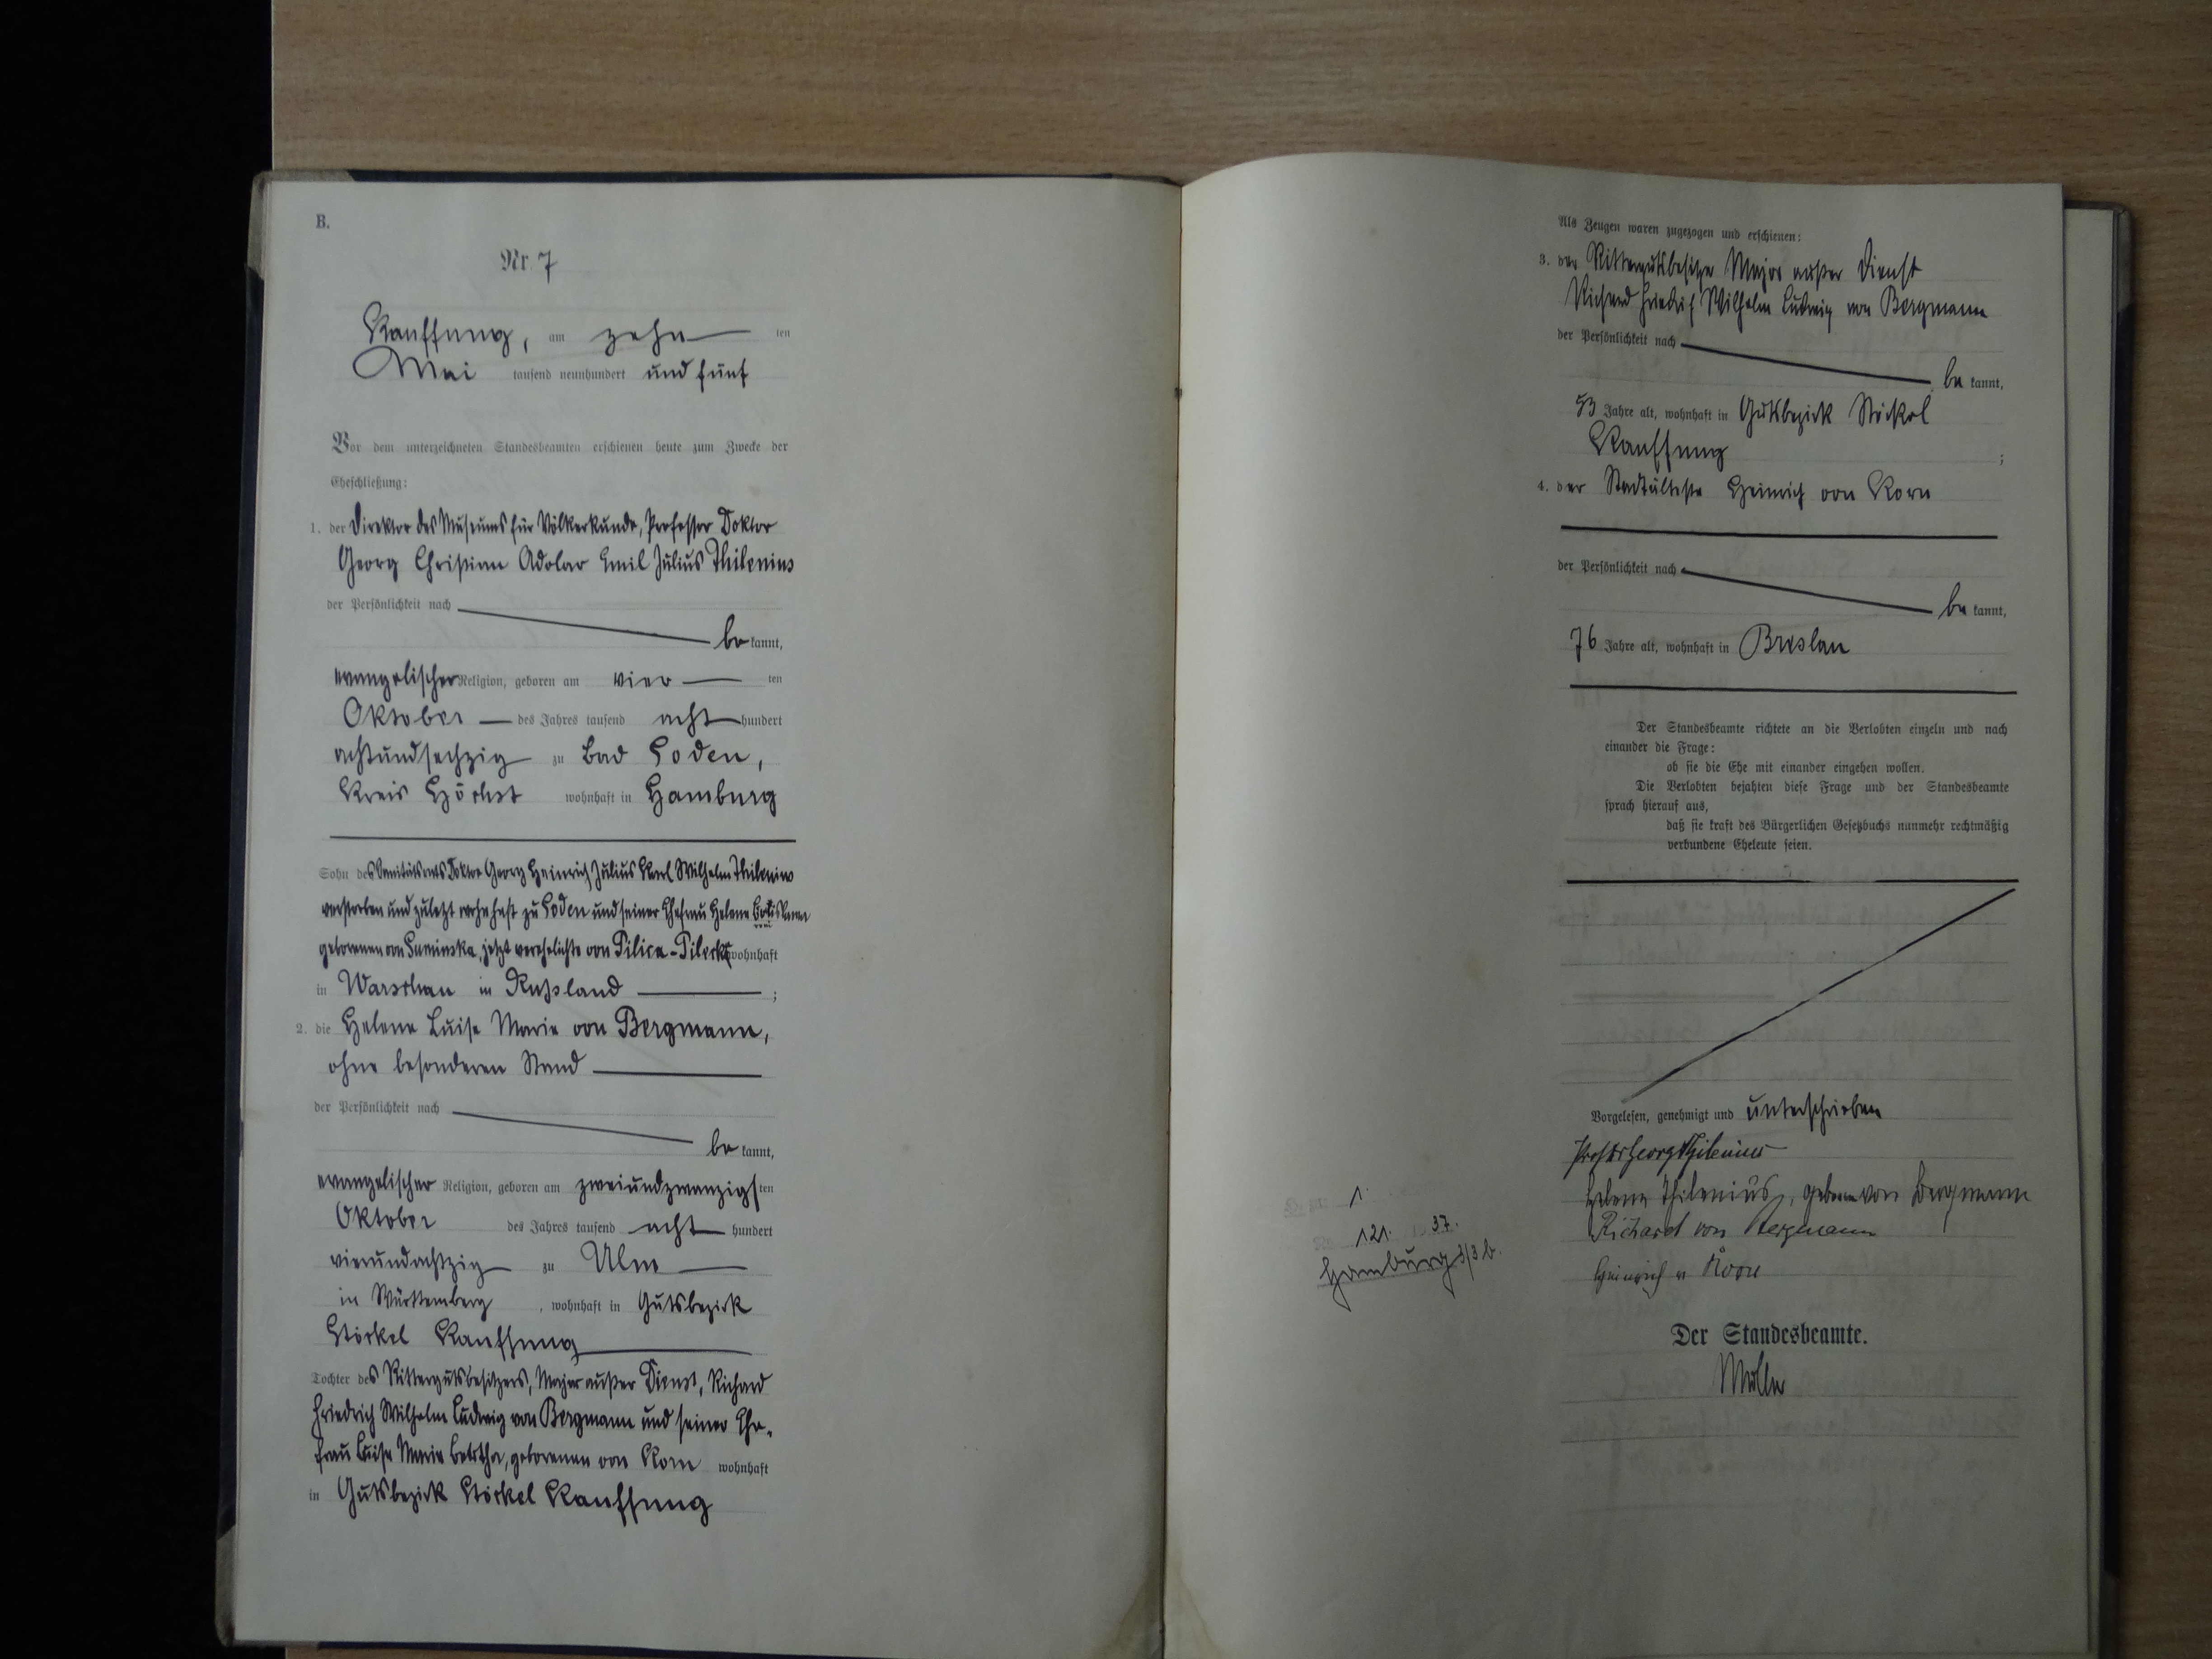 B.
Nr. 7
Kauffung, am zehn ten
Mai tausend neunhundert und fünf
Vor dem unterzeichneten Standesbeamten erschienen heute zum Zwecke der
Eheschließung:
1. der Direktor des Museums für Völkerkunde, Professor Doktor
Georg Christian Adolar Emil Julius Thilenius
der Persönlichkeit nach
be kannt,
evangelischer Religion, geboren am vier ten
Oktober des Jahres tausend acht hundert
achtundsechzig zu Bad Soden,
Kreis Höchst wohnhaft in Hamburg
Sohn des Sanitätsrats Doktor Georg Heinrich Julius Karl Wilhelm Thilenius
verstorben und zuletzt wohnhaft zu Soden und seiner Ehefrau Helene
geborenen von Suminska, jetzt verehelichte von Pilica-Pilecki wohnhaft
in Warschau in Rußland ;
2. die Helene Luise Marie von Bergmann,
ohne besonderen Stand
der Persönlichkeit nach
be kannt,
evangelischer Religion, geboren am zweiundzwanzigsten
Oktober des Jahres tausend acht hundert
vierundachtzig zu Ulm
in Württemberg , wohnhaft in Gutsbezirk
Stöckel Kauffung
Tochter des Rittergutsbesitzers, Major außer Dienst, Richard
Friedrich Wilhelm Ludwig von Bergmann und seiner Ehe-
frau Luise Marie Bertha, geborenen von Korn wohnhaft
in Gutsbezirk Stöckel Kauffung
Als Zeugen waren zugezogen und erschienen:
3. der Rittergutsbesitzer Major außer Dienst
Richard Friedrich Wilhelm Ludwig von Bergmann
der Persönlichkeit nach
be kannt,
53 Jahre alt, wohnhaft in Gutsbezirk Stöckel
Kauffung ;
4. der Stadtälteste Heinrich von Korn
der Persönlichkeit nach
be kannt,
76 Jahre alt, wohnhaft in Breslau
Der Standesbeamte richtete an die Verlobten einzeln und nach
einander die Frage:
ob sie die Ehe mit einander eingehen wollen.
Die Verlobten bejahten diese Frage und der Standesbeamte
sprach hierauf aus,
daß sie kraft des Bürgerlichen Gesetzbuchs nunmehr rechtmäßig
verbundene Eheleute seien.
Vorgelesen, genehmigt und unterschrieben
Prof Dr Georg Thilenius
Helene Thilenius, geborne von Bergmann
Richard von Bergmann
Heinrich v Korn
1.
121. 37.
Hamburg 3/3 b.
Der Standesbeamte.
Müller